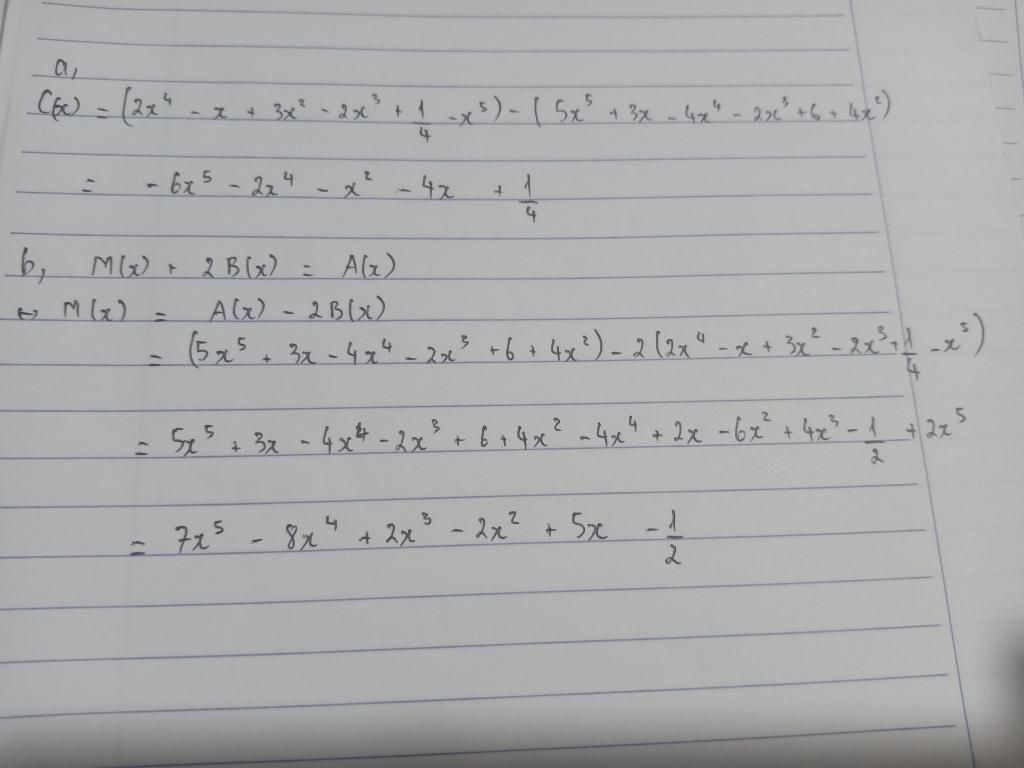 a,
C(x) = (2x⁴ - x + 3x² - 2x³ + 1/4 - x⁵) - (5x⁵ + 3x - 4x⁴ - 2x³ + 6 + 4x²)
= - 6x⁵ - 2x⁴ - x² - 4x + 1/4
b, M(x) + 2B(x) = A(x)
↔ M(x) = A(x) - 2B(x)
= (5x⁵ + 3x - 4x⁴ - 2x³ + 6 + 4x²) - 2(2x⁴ - x + 3x² - 2x³ + 1/4 - x⁵)
= 5x⁵ + 3x - 4x⁴ - 2x³ + 6 + 4x² - 4x⁴ + 2x - 6x² + 4x³ - 1/2 + 2x⁵
= 7x⁵ - 8x⁴ + 2x³ - 2x² + 5x - 1/2